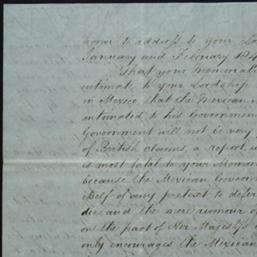 nour to address to your Lo
January and February 184
That your Memorial
intimate to your Lordship
in Mexico that the Mexican
intimated to his Governmen
Government will not be very
of British claims, a report, w
is most fatal to your Memor
because the Mexican Governm
itself of any pretext to defer
dice and the mere rumour of
on the part of Her Majesty's
only encourages the Mexican